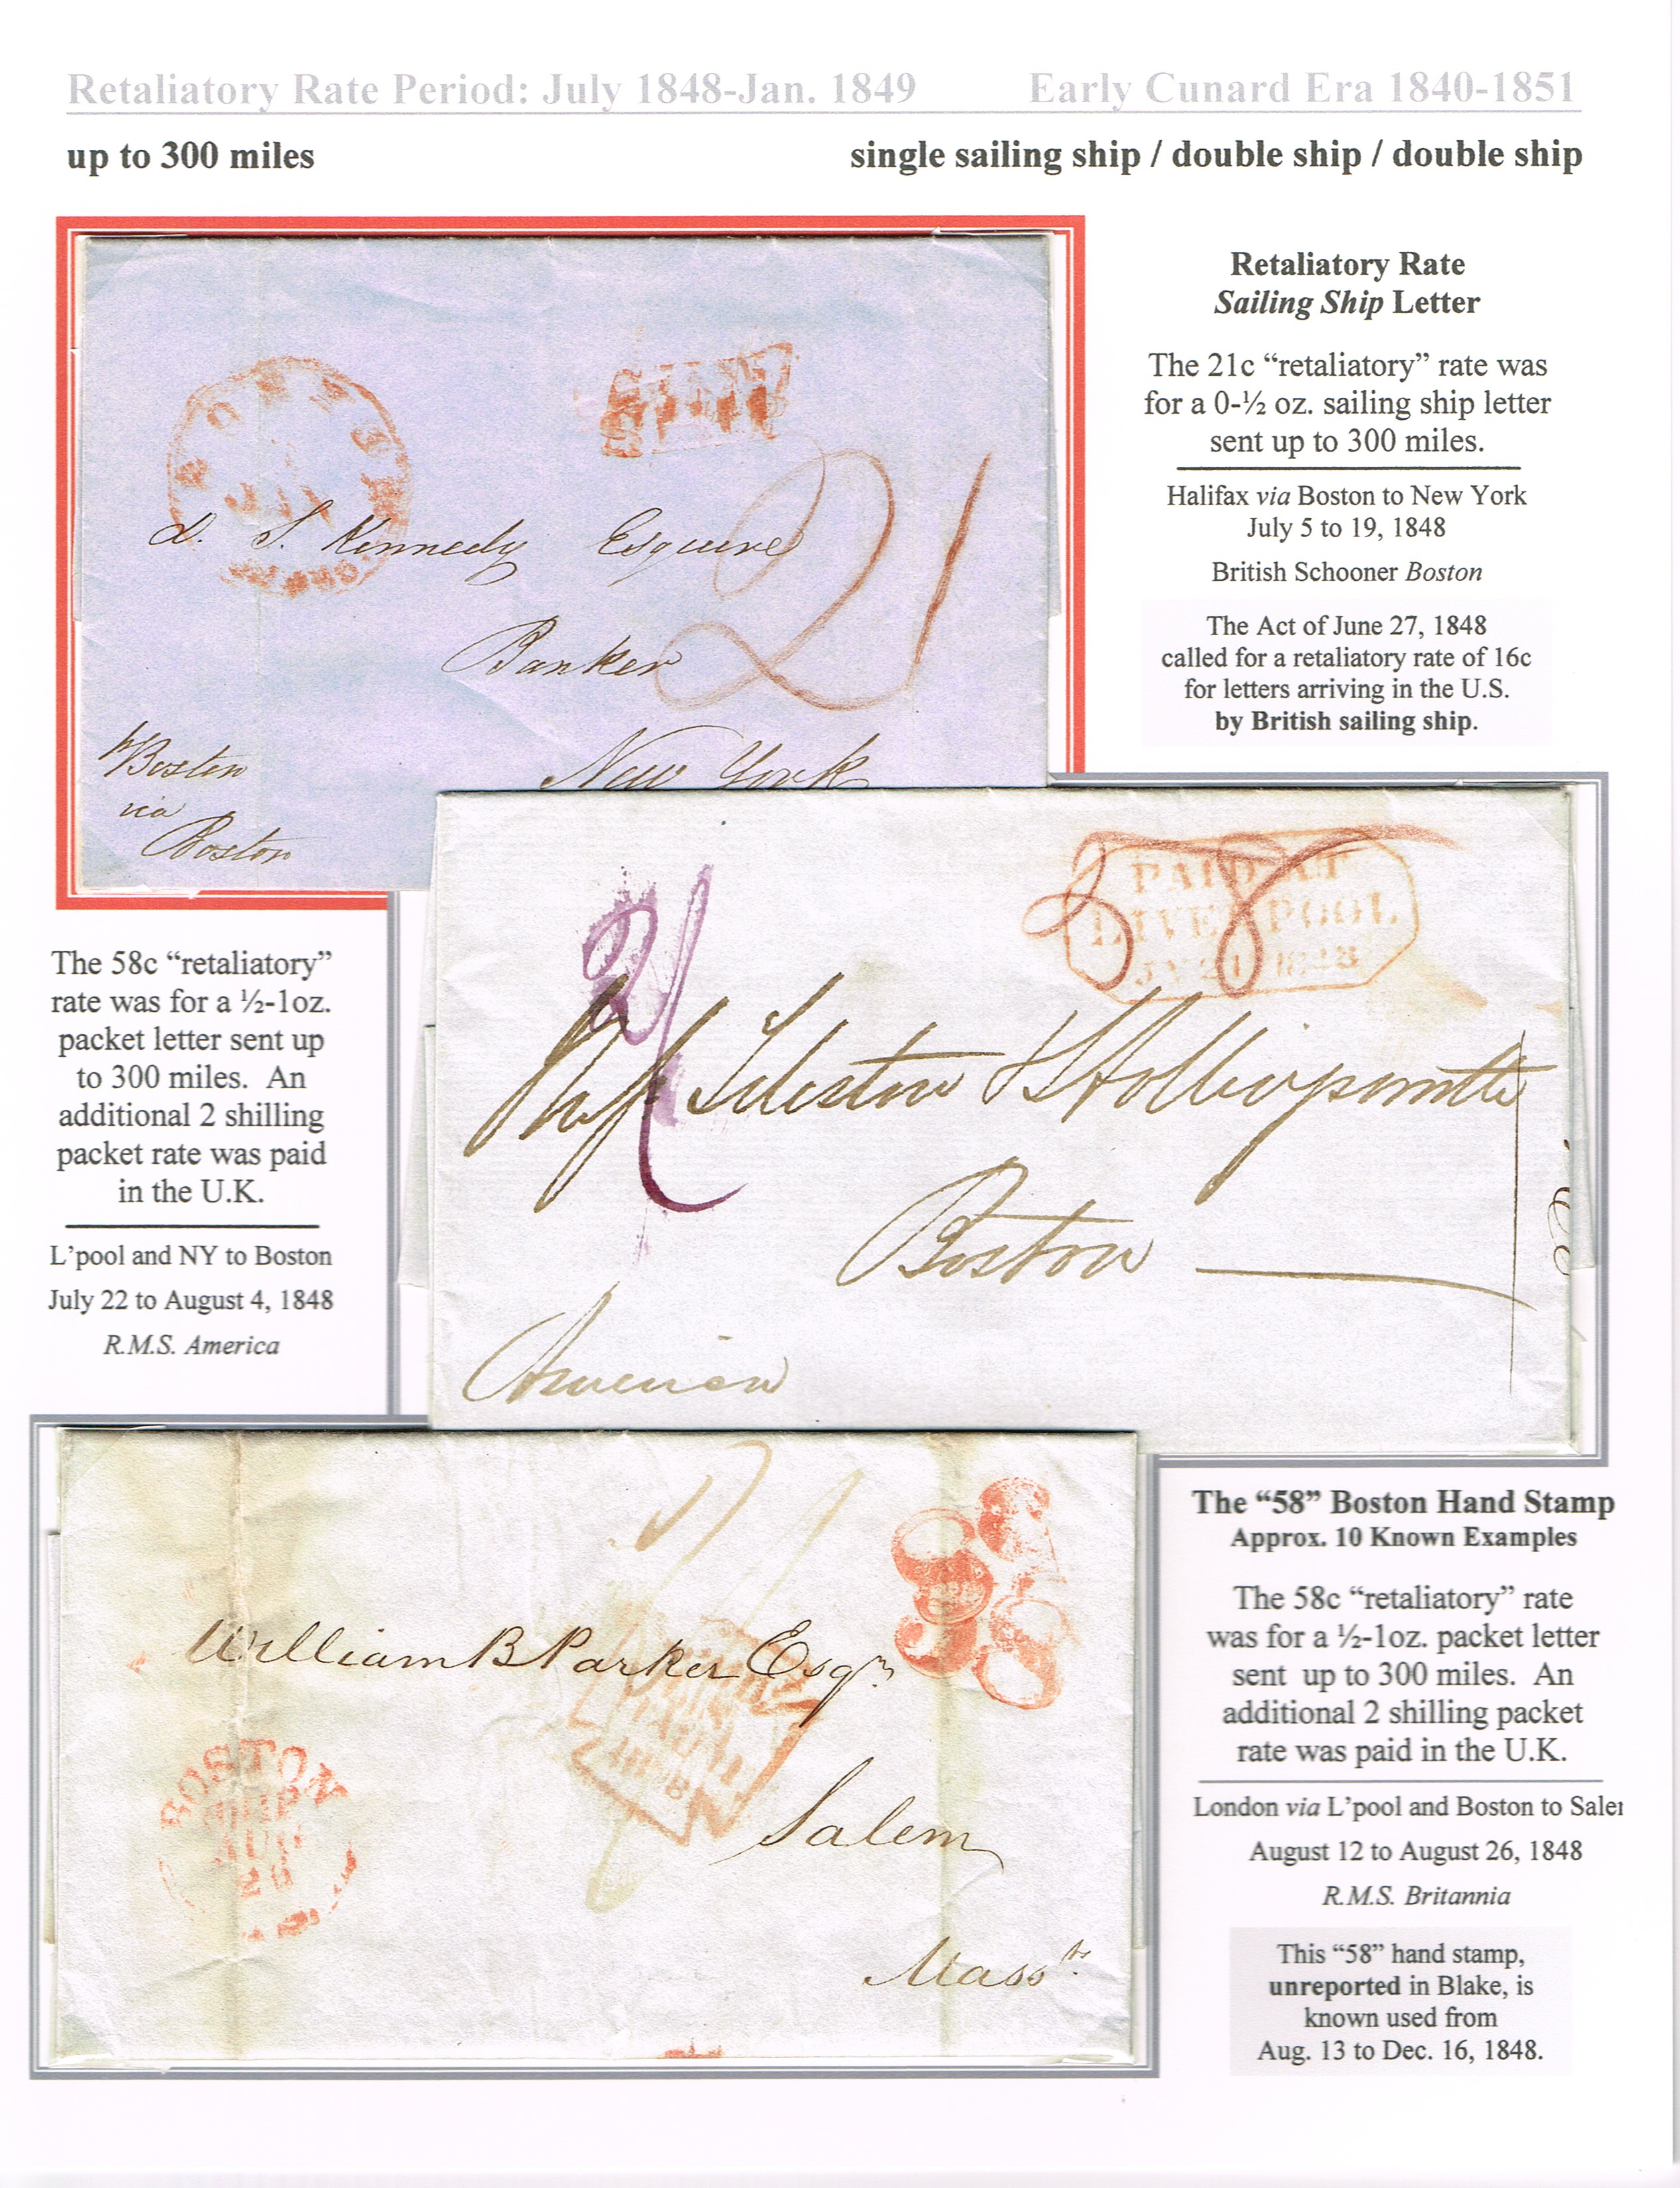 Retaliatory Rate Period: July 1848-Jan. 1849 Early Cunard Era 1840-1851
up to 300 miles single sailing ship / double ship / double ship
Retaliatory Rate
Sailing Ship Letter
The 21c “retaliatory” rate was
for a 0-½ oz. sailing ship letter
sent up to 300 miles.
Halifax via Boston to New York
July 5 to 19, 1848
British Schooner Boston
The Act of June 27, 1848
called for a retaliatory rate of 16c
for letters arriving in the U.S.
by British sailing ship.
SHIP
BOSTON
21
D. S. Kennedy Esquire
Banker
New York
Boston
via
Boston
The 58c “retaliatory”
rate was for a ½-1oz.
packet letter sent up
to 300 miles. An
additional 2 shilling
packet rate was paid
in the U.K.
L’pool and NY to Boston
July 22 to August 4, 1848
R.M.S. America
PAID AT
LIVERPOOL
JY 21 1848
58
2/
Boston
America
The “58” Boston Hand Stamp
Approx. 10 Known Examples
The 58c “retaliatory” rate
was for a ½-1oz. packet letter
sent up to 300 miles. An
additional 2 shilling packet
rate was paid in the U.K.
London via L’pool and Boston to Saler
August 12 to August 26, 1848
R.M.S. Britannia
This “58” hand stamp,
unreported in Blake, is
known used from
Aug. 13 to Dec. 16, 1848.
58
William B Parker Esqr
Salem
Massts.
BOSTON
SHIP
AUG
26